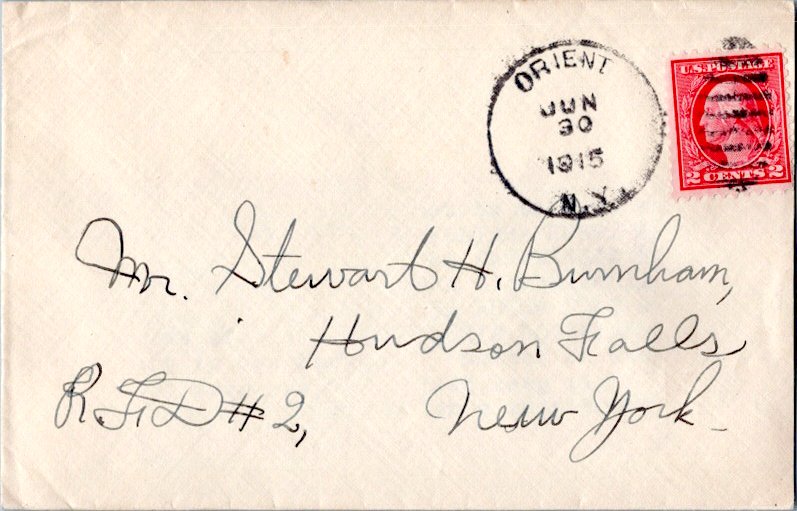 ORIENT
JUN
30
1915
N.Y.
U.S. POSTAGE
2 CENTS 2
Mr. Stewart H. Burnham,
Hudson Falls
R.F.D #2, New York.